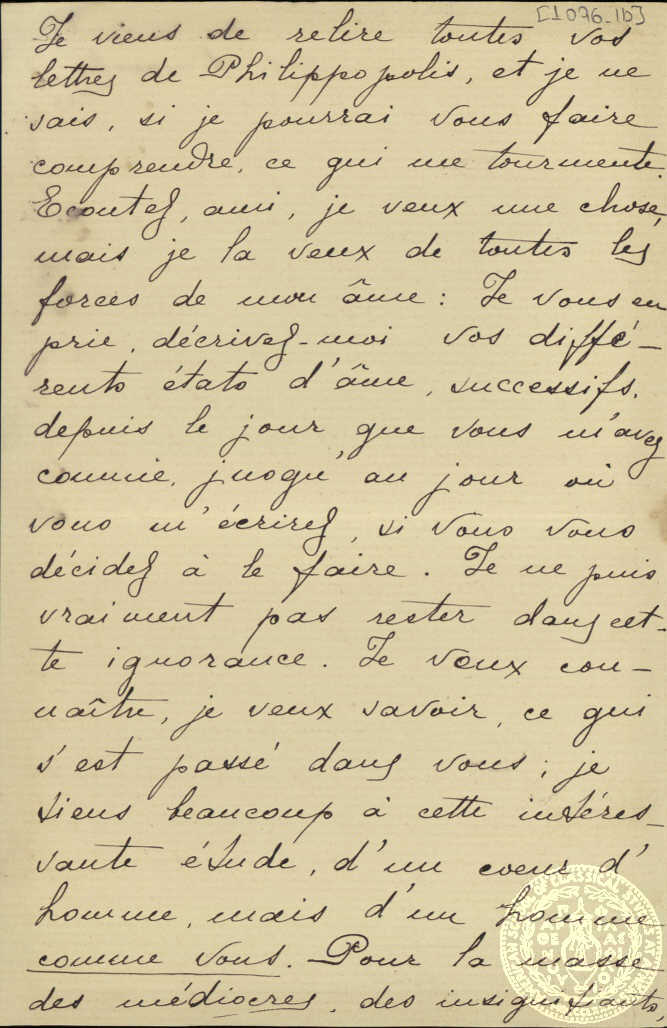 [1076_1b]
Je viens de relire toutes vos
lettres de Philippopolis, et je ne
sais, si je pourrai vous faire
comprendre, ce qui me tourmente.
Ecoutez, ami, je veux une chose,
mais je la veux de toutes les
forces de mon âme : Je vous en
prie, décrivez-moi vos diffé-
rents états d'âme, successifs,
depuis le jour que vous m'avez
connue, jusqu'au jour où
vous m'écrirez, si vous vous
décidez à le faire. Je ne puis
vraiment pas rester dans cet-
te ignorance. Je veux con-
naître, je veux savoir, ce qui
s'est passé dans vous ; je
tiens beaucoup à cette intéres-
sante étude, d'un coeur d'
homme, mais d'un homme
comme vous. Pour la masse
des médiocres, des insignifiants,